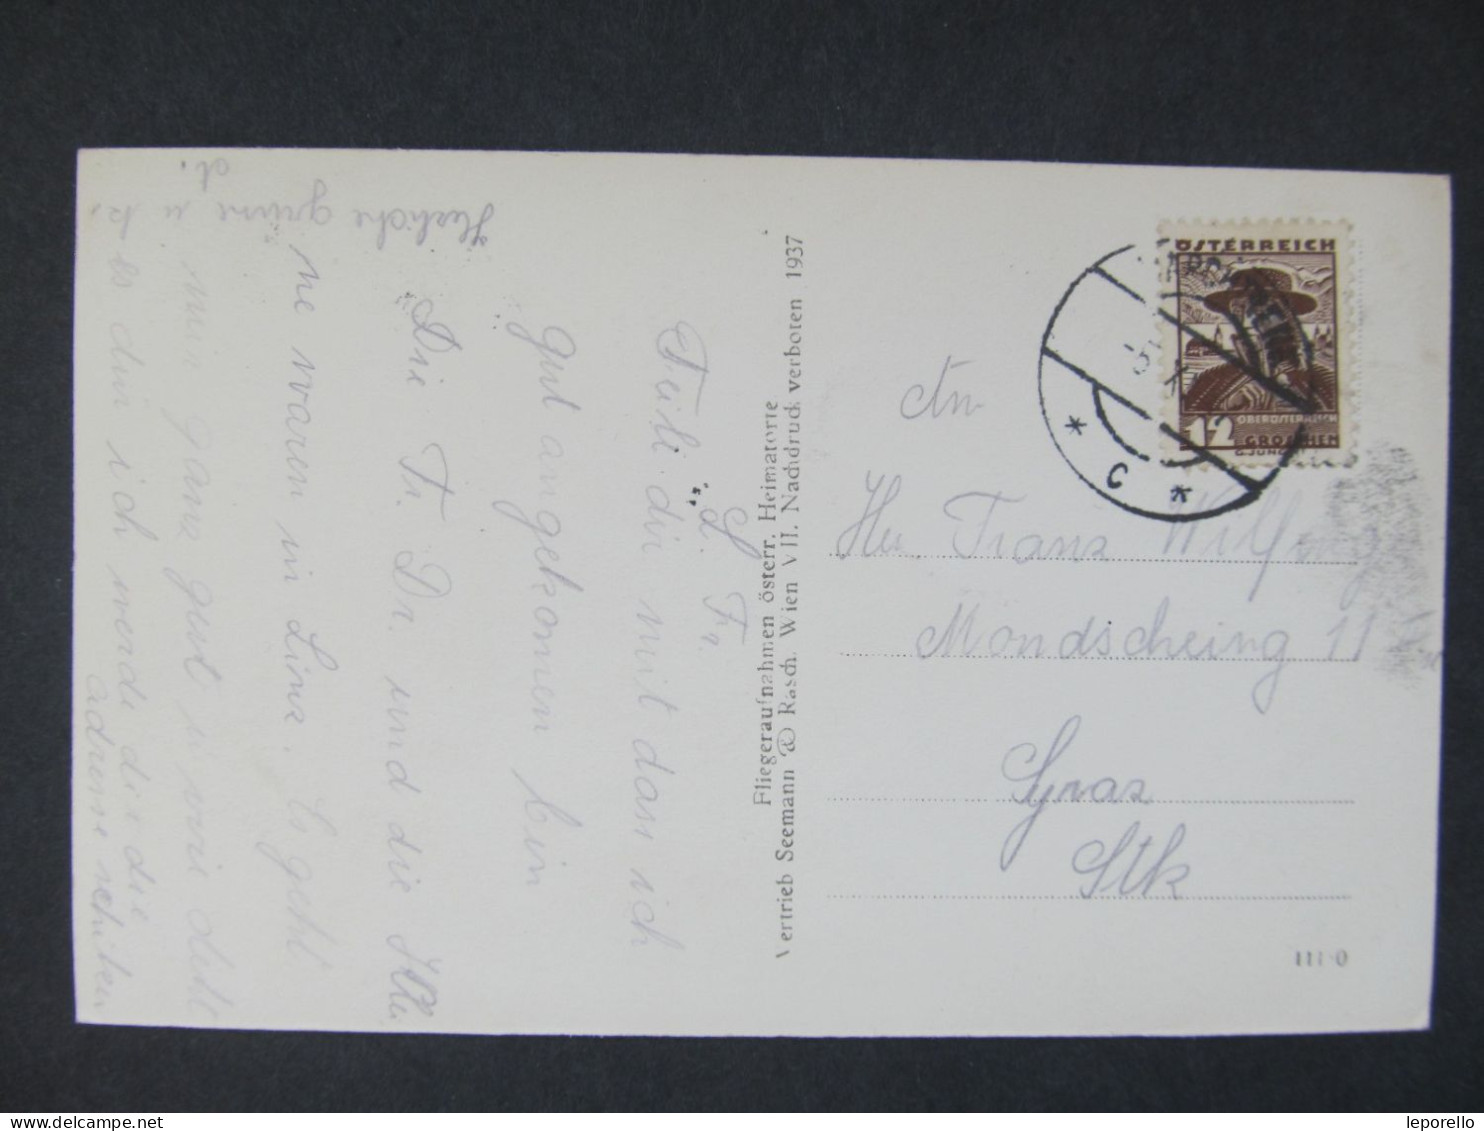 L. Fr.
Teile dir mit dass ich
gut angekomen bin
Die Fr. Dr. und die
waren in Linz. Es geht
mir ganz gut u wie
es dir ich werde dir die
adresse schiken
Herliche grüsse u
Fliegeraufnahmen österr. Heimatorte
Vertrieb Seemann & Rasch. Wien VII. Nachdruck verboten 1937
ÖSTERREICH
OBERÖSTERREICH
12 GROSCHEN
* C *
An
Franz
Mondscheing 11
Graz
Stk
leporello